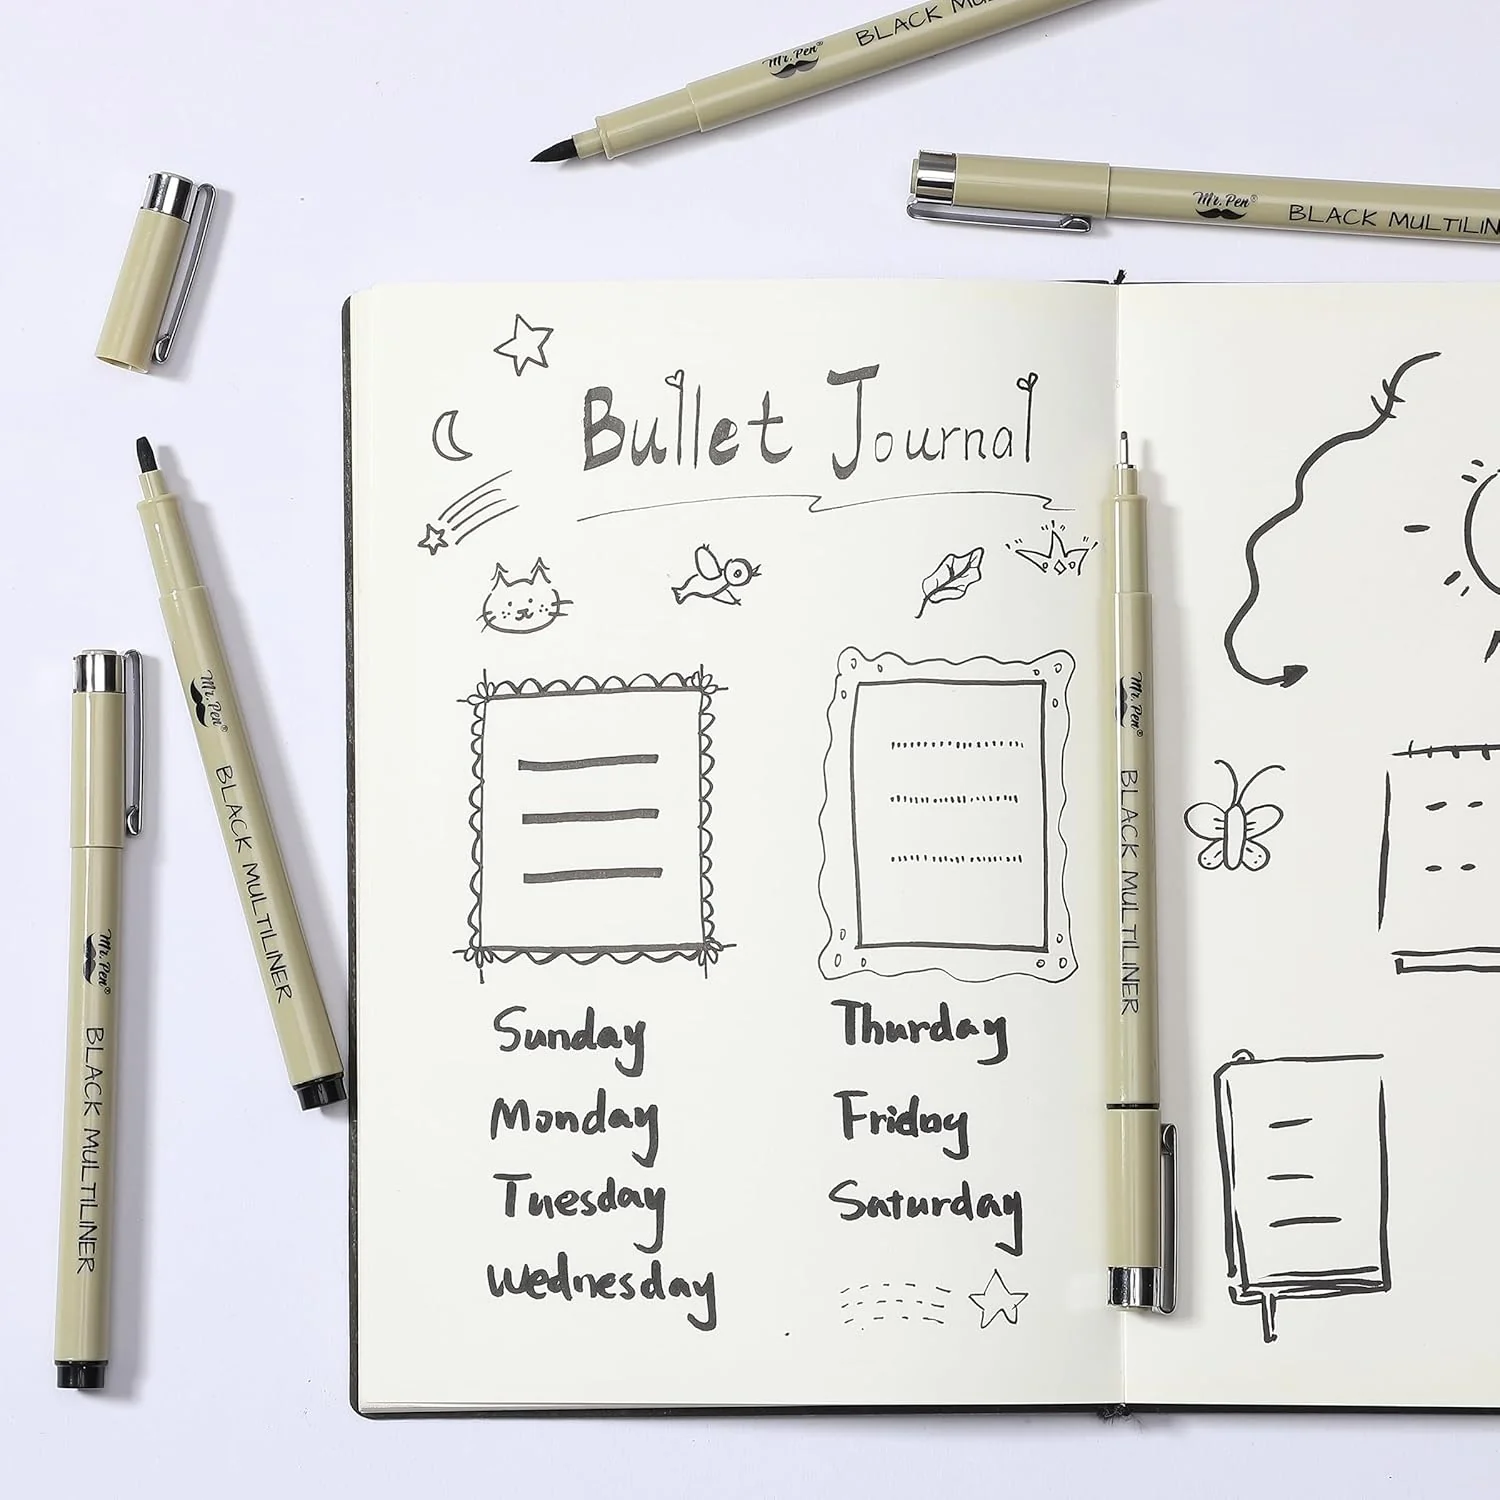 Mr. Pen®
BLACK MU
Mr. Pen®
BLACK MULTILIN
Bullet Journal
Mr. Pen®
BLACK MULTILINER
Mr. Pen®
BLACK MULTILINER
Mr. Pen®
BLACK MULTILINER
Sunday
Monday
Tuesday
Wednesday
Thurday
Friday
Saturday